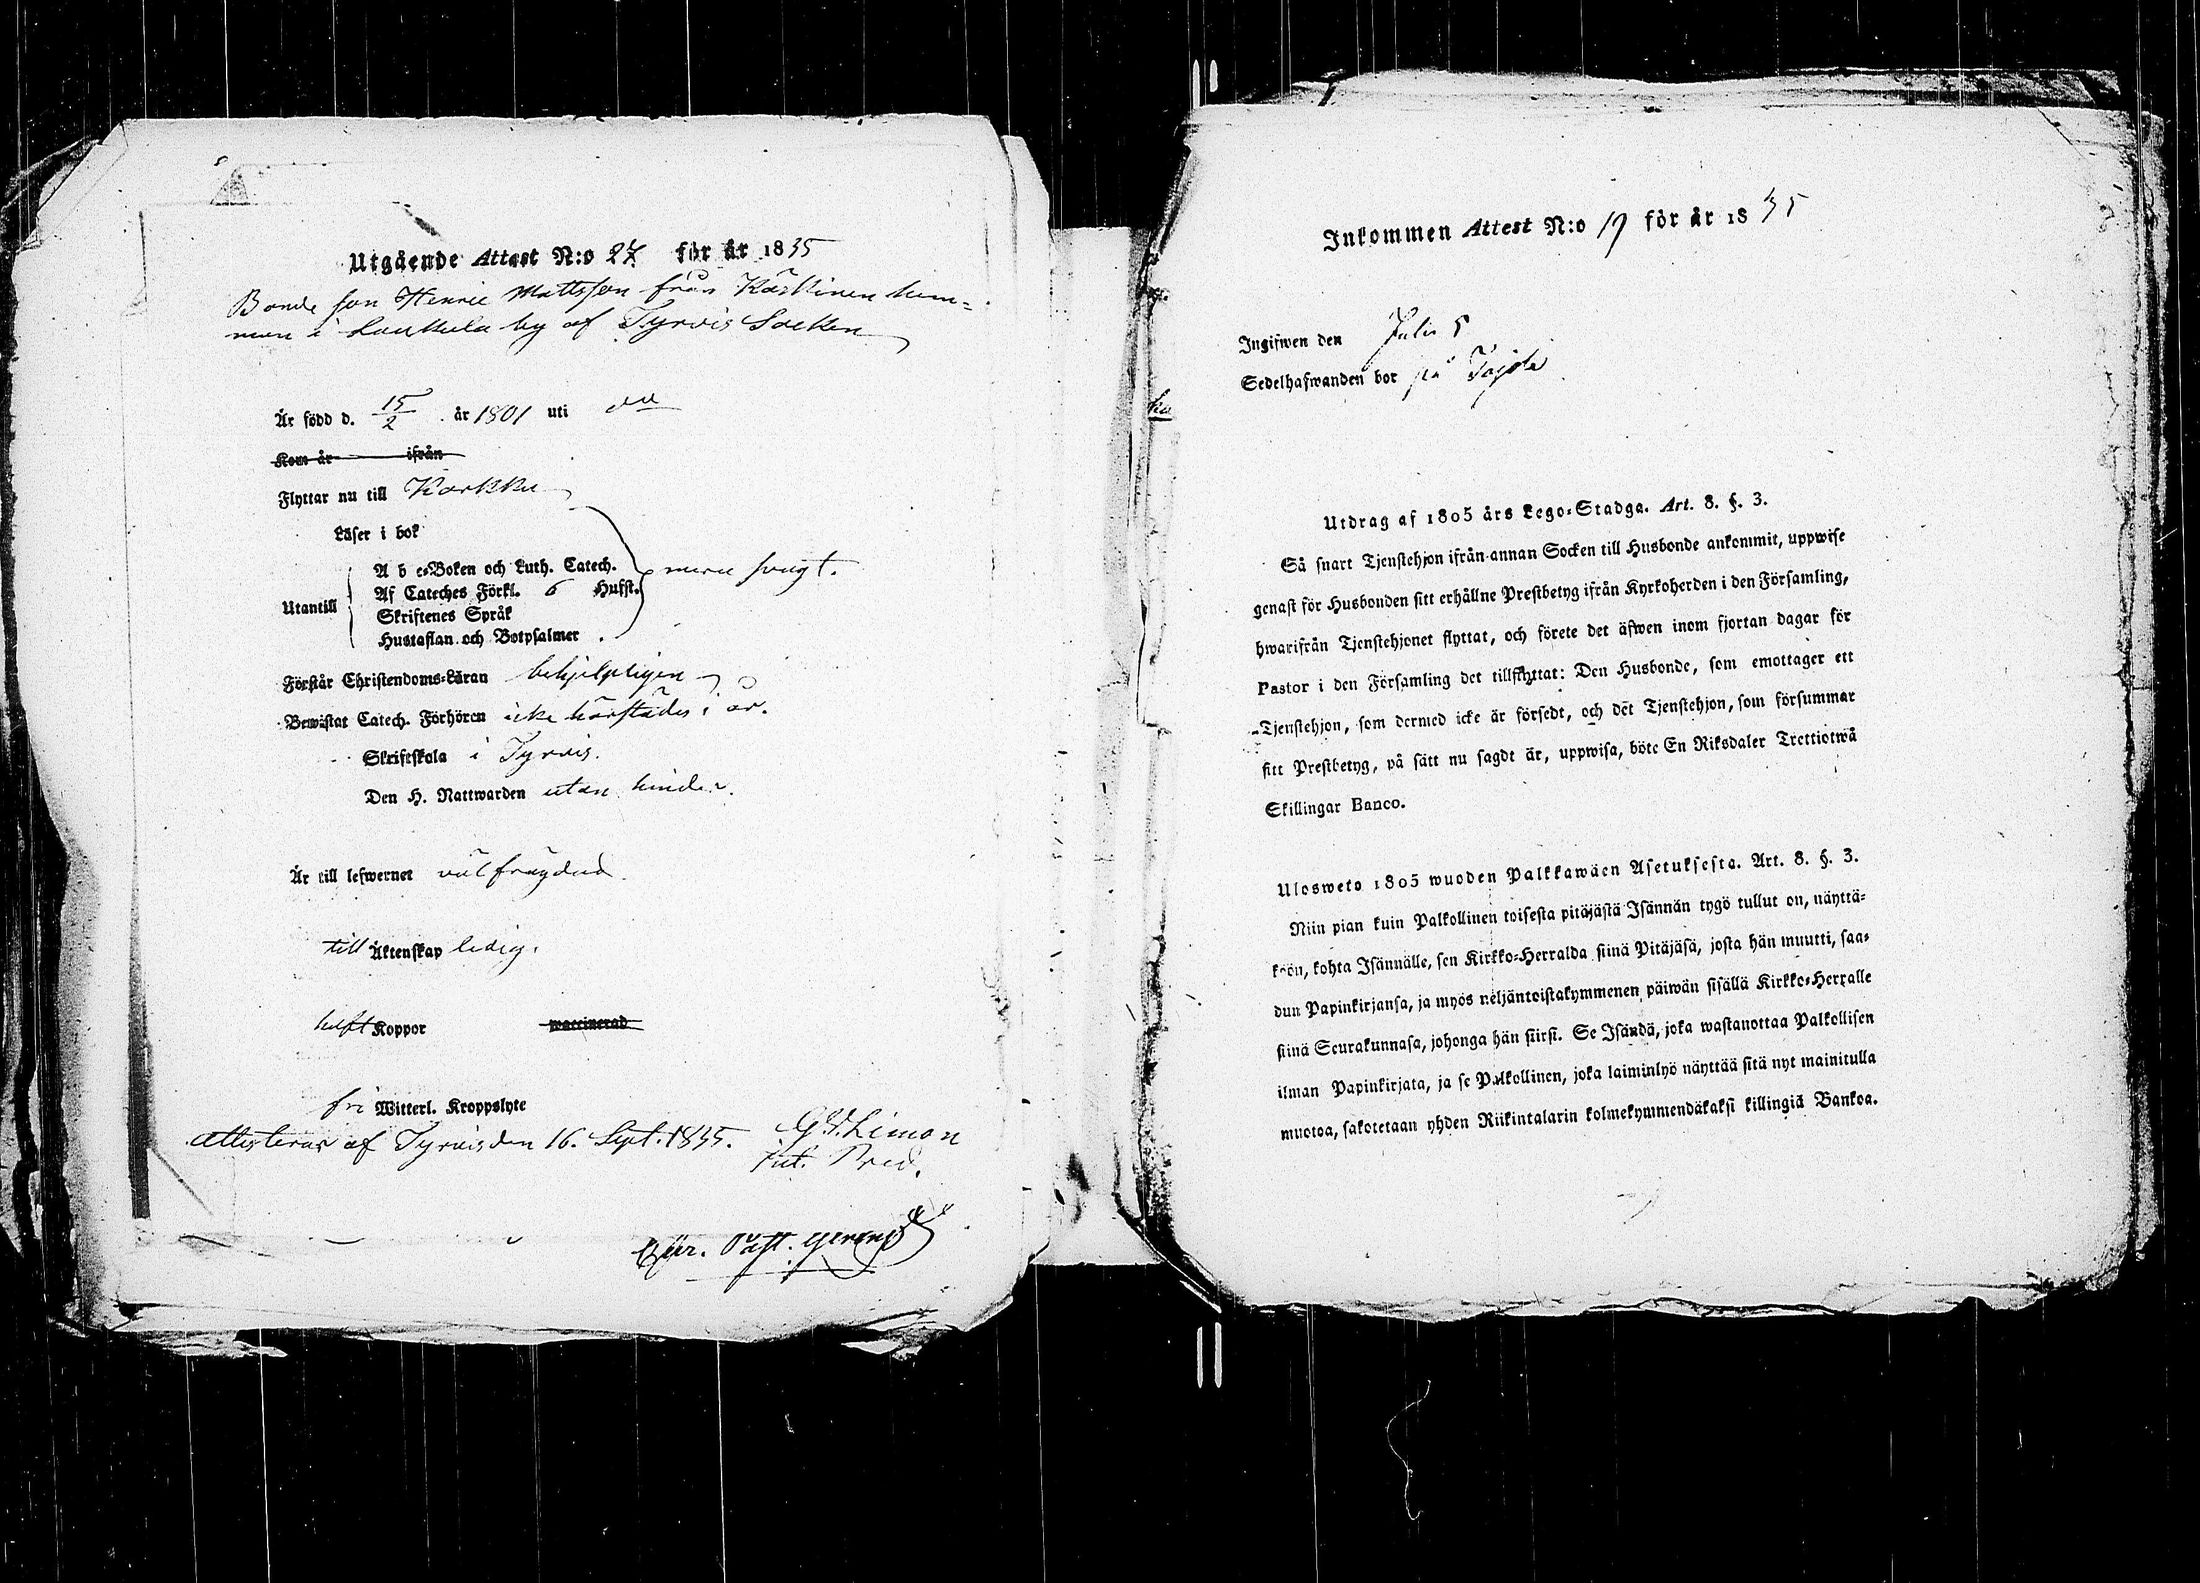 Utgående Attest N:o 24 för år 1835
Bonde son Henric Mattsson från Kärkinen hem=
man i Laukula by af Tyrvis Socken
Är född d. 15/2 år 1801 uti do
Kom år ifrån
Flyttar nu till Karkku
Läser i bok
A b c=Boken och Luth. Catech.
Af Cateches Förkl. 6 Hufst. svagt.
Utantill
Skriftenes Språk
Hustaflan och Botpsalmer
Förstår Christendoms=Läran behjelpligen
Bewistat Catech. Förhören icke härstädes i år.
Skriftskola i Tyrvis.
Den H. Nattwarden utan hinder.
Är till lefwernet välfrägdad.
till Äktenskap ledig.
haft Koppor waccinerad
fri Witterl. Kroppslyte
Attesteras af Tyrvis den 16. Sept. 1835. G. Limon
Past.
Inkommen Attest N:o 19 för år 1835
Ingifwen den Julii 5
Sedelhafwanden bor på
Utdrag af 1805 års Lego=Stadga. Art. 8. §. 3.
Så snart Tjenstehjon ifrån annan Socken till Husbonde ankommit, uppwise
genast för Husbonden sitt erhållne Prestbetyg ifrån Kyrkoherden i den Församling,
hwarifrån Tjenstehjonet flyttat, och förete det äfwen inom fjortan dagar för
Pastor i den Församling det tillflyttat: Den Husbonde, som emottager ett
Tjenstehjon, som dermed icke är försedt, och det Tjenstehjon, som försummar
sitt Prestbetyg, på sätt nu sagdt är, uppwisa, böte En Riksdaler Trettiotwå
Skillingar Banco.
Ulosweto 1805 wuoden Palkkawäen Asetuksesta. Art. 8. §. 3.
Niin pian kuin Palkollinen toisesta pitäjästä Isännän tygö tullut on, näyttä=
köön, kohta Isännälle, sen Kirkko=Herralda siinä Pitäjäsä, josta hän muutti, saa=
dun Papinkirjansa, ja myös neljäntoistakymmenen päiwän sisällä Kirkko=Herralle
siinä Seurakunnasa, johonga hän siirsi. Se Isändä, joka wastanottaa Palkollisen
ilman Papinkirjata, ja se Palkollinen, joka laiminlyö näyttää sitä nyt mainitulla
muotoa, sakotetaan yhden Riikintalarin kolmekymmendäkaksi killingiä Bankoa.